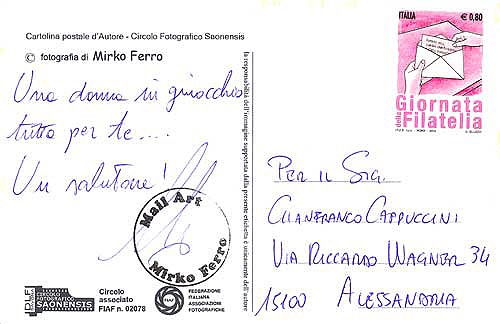 Cartolina postale d'Autore - Circolo Fotografico Saonensis
© fotografia di Mirko Ferro
Una donna in ginocchio
tutta per te...
Un salutone!
Mail Art
Mirko Ferro
Circolo
associato
FIAF n. 02078
FIAF
FEDERAZIONE
ITALIANA
ASSOCIAZIONI
FOTOGRAFICHE
CIRCOLO
FOTOGRAFICO
SAONENSIS
la responsabilità dell'immagine supportata dalla presente etichetta è unicamente dell'autore
ITALIA € 0,80
Giornata
della Filatelia
PER IL SIG.
GIANFRANCO CAPPUCCINI
VIA RICCARDO WAGNER 34
15100 ALESSANDRIA